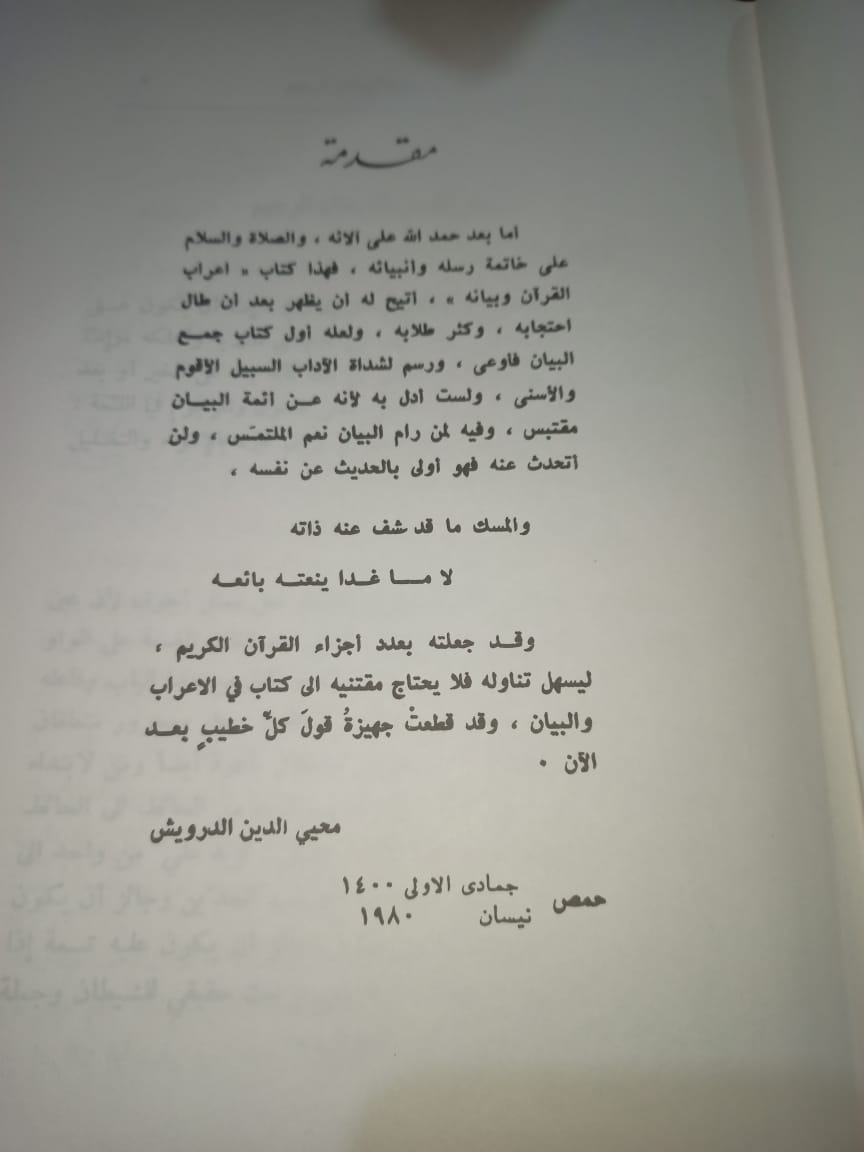 مقدمة
أما بعد حمد الله على آلائه ، والصلاة والسلام
على خاتمة رسله وأنبيائه ، فهذا كتاب « اعراب
القرآن وبيانه » ، أتيح له أن يظهر بعد ان طال
احتجابه ، وكثر طلابه ، ولعله أول كتاب جمـع
البيان فأوعى ، ورسم لشداة الآداب السبيل الأقوم
والأسنى ، ولست أدل به لأنه عـن أئمة البيـان
مقتبس ، وفيه لمن رام البيان نعم الملتمَس ، ولن
أتحدث عنه فهو أولى بالحديث عن نفسه ،
والمسك ما قد شف عنه ذاته
لا مـا غـدا ينعتـه بائعـه
وقـد جعلته بعدد أجزاء القرآن الكريم ،
ليسهل تناوله فلا يحتاج مقتنيه الى كتاب في الاعراب
والبيان ، وقد قطعتْ جهيزةُ قولَ كلِّ خطيبٍ بعـد
الآن ٠
محيي الدين الدرويش
حمص جمادى الاولى ١٤٠٠
نيسان ١٩٨٠